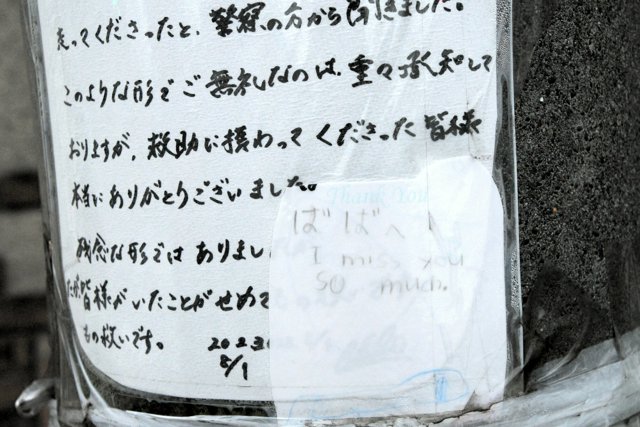 走ってくださったと、警察の方から聞きました。
このような形でご無礼なのは、重々承知して
おりますが、救助に携わってくださった皆様
本当にありがとうございました。
残念な形ではありまし
皆様がいたことがせめて
もの救いです。
202
5/1
Thank You
ばばへ
I miss you
so much.